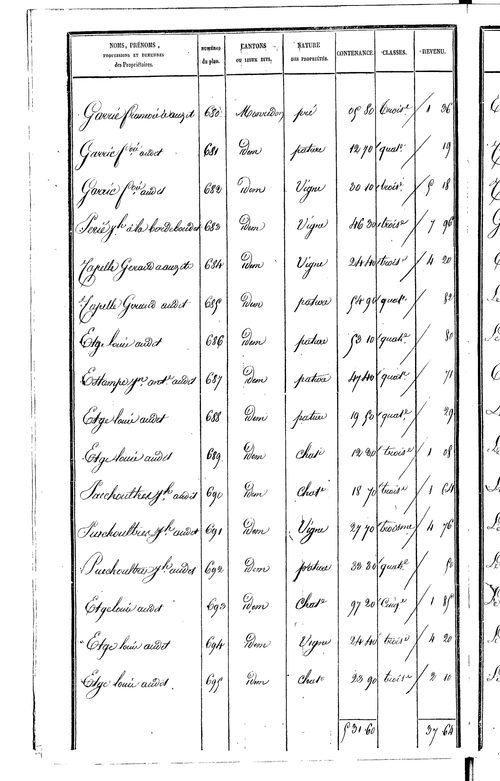 NOMS, PRÉNOMS, PROFESSIONS ET DEMEURES des Propriétaires. NUMÉROS du plan. CANTONS OU LIEUX DITS. NATURE DES PROPRIÉTÉS. CONTENANCE. CLASSES. REVENU.
Garrié françois à auzet 680 Monredon pré 05 80 trois.e 1 36
Garrié f.çois audet 681 Idem pature 12 70 quat.e 19
Garrié f.çois audet 682 Idem Vigne 30 10 trois.e 5 18
Périé j.h à la bordeboudet 683 Idem Vigne 46 30 trois.e 7 96
Zapelle Géraud a auzet 684 Idem Vigne 24 40 trois.e 4 20
Zapelle Géraud audet 685 Idem pature 54 90 quat.e 82
Etge louis audet 686 Idem pature 53 10 quat.e 80
Estampe audet 687 Idem pature 47 40 quat.e 71
Etge louis audet 688 Idem pature 19 50 quat.e 29
Etge louis audet 689 Idem chat.e 12 20 trois.e 1 08
j.h audet 690 Idem chat.e 18 70 trois.e 1 64
j.h audet 691 Idem Vigne 27 70 troisme 4 76
j.h audet 692 Idem pature 33 30 quat.e 50
Etge louis audet 693 Idem Chat.e 97 20 Cinq.e 1 85
Etge louis audet 694 Idem Vigne 24 40 trois.e 4 20
Etge louis audet 695 Idem chat.e 23 90 trois.e 2 10
5 31 60 37 64